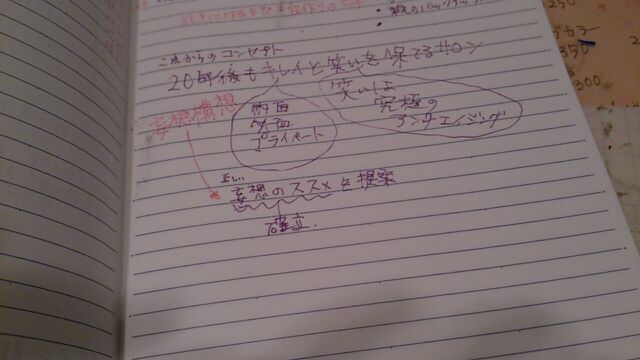 これからのコンセプト
20年後もキレイと笑いを保てるサロン
妄想構想
内面
外面
プライベート
笑いは
究極の
アンチエイジング
妄想のススメを提案
確立
250
カラー
350
300